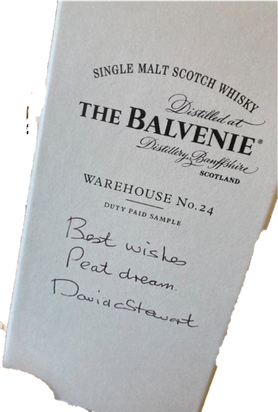 SINGLE MALT SCOTCH WHISKY
Distilled at
THE BALVENIE®
Distillery, Banffshire
SCOTLAND
WAREHOUSE No. 24
DUTY PAID SAMPLE
Best wishes
Peat dream.
David Stewart